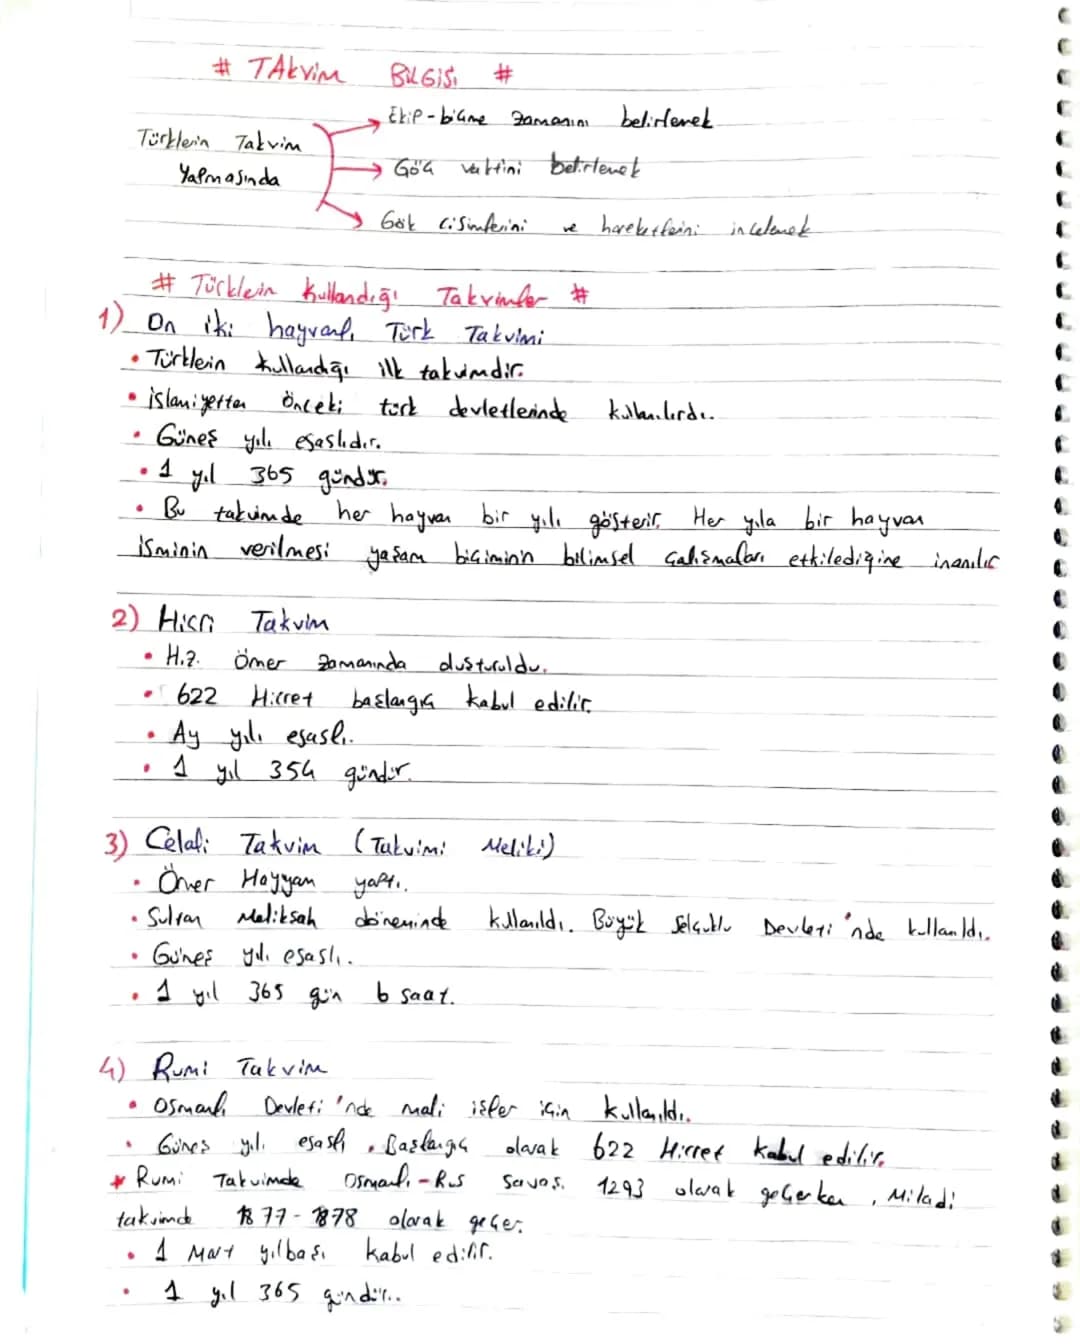 # TAkvim BİLGİSİ #
Türklerin Takvim Yapmasında
→ Ekip-biçme zamanını belirlemek
→ Göç vaktini belirlemek
→ Gök cisimlerini ve hareketlerini incelemek
# Türklerin Kullandığı Takvimler #
1) On iki hayvanlı Türk Takvimi
• Türklerin kullandığı ilk takvimdir.
• islamiyetten önceki türk devletlerinde kullanılırdı.
• Güneş yılı esaslıdır.
• 1 yıl 365 gündür.
• Bu takvimde her hayvan bir yılı gösterir. Her yıla bir hayvan
isminin verilmesi yaşam biçiminin bilimsel çalışmaları etkilediğine inanılır
2) Hicri Takvim
• Hz. Ömer zamanında oluşturuldu.
• 622 Hicret başlangıç kabul edilir.
• Ay yılı esaslı.
• 1 yıl 354 gündür.
3) Celali Takvim (Takvimi Meliki)
• Ömer Hayyam yaptı.
• Sultan Melikşah döneminde kullanıldı. Büyük Selçuklu Devleti'nde kullanıldı.
• Güneş yılı esaslı.
• 1 yıl 365 gün 6 saat.
4) Rumi Takvim
• Osmanlı Devleti'nde mali işler için kullanıldı.
• Güneş yılı esaslı. Başlangıç olarak 622 Hicret kabul edilir.
* Rumi Takvimde Osmanlı-Rus Savaşı 1293 olarak geçerken, Miladi
takvimde 1877-1878 olarak geçer.
• 1 Mart yılbaşı kabul edilir.
• 1 yıl 365 gündür..